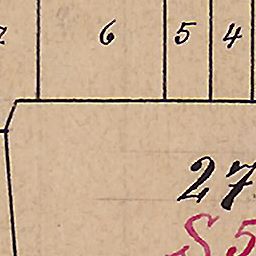 6 5 4
27
S 5